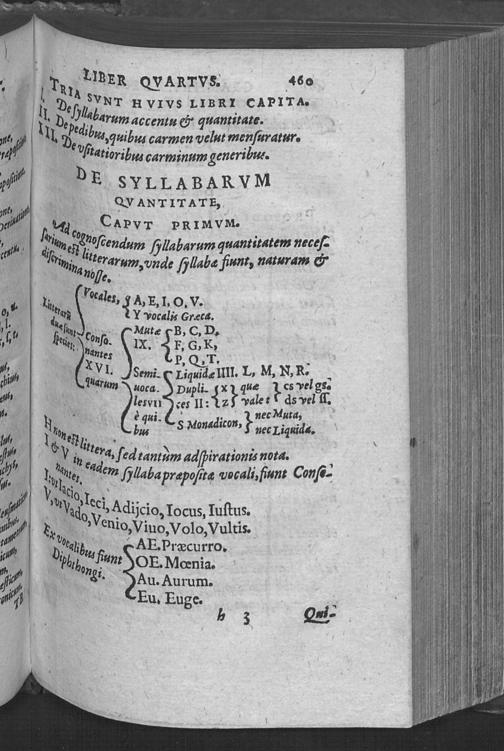 LIBER QVARTVS. 460
TRIA SVNT HVIVS LIBRI CAPITA.
I. De syllabarum accentu & quantitate.
II. De pedibus, quibus carmen velut mensuratur.
III. De vsitatioribus carminum generibus.
DE SYLLABARVM
QVANTITATE,
CAPVT PRIMVM.
Ad cognoscendum syllabarum quantitatem neces-
sarium est litterarum, vnde syllabæ fiunt, naturam &
discrimina nosse.
Litterarū duæ sunt species:
Vocales, A, E, I, O, V.
Y vocalis Græca.
Consonantes XVI. quarum
Mutæ IX. B, C, D,
F, G, K,
P, Q, T.
Semivocales VII è quibus
Liquidæ IIII. L, M, N, R.
Duplices II: x z quæ valet cs vel gs.
ds vel ss.
S Monadicon, nec Muta,
nec Liquida.
H non est littera, sed tantùm adspirationis nota.
I & V in eadem syllaba præpositæ vocali, fiunt Conso-
nantes.
I, vt Iacio, Ieci, Adijcio, Iocus, Iustus.
V, vt Vado, Venio, Viuo, Volo, Vultis.
Ex vocalibus fiunt
Diphthongi.
AE. Præcurro.
OE. Mœnia.
Au. Aurum.
Eu. Euge.
h 3 Qui-